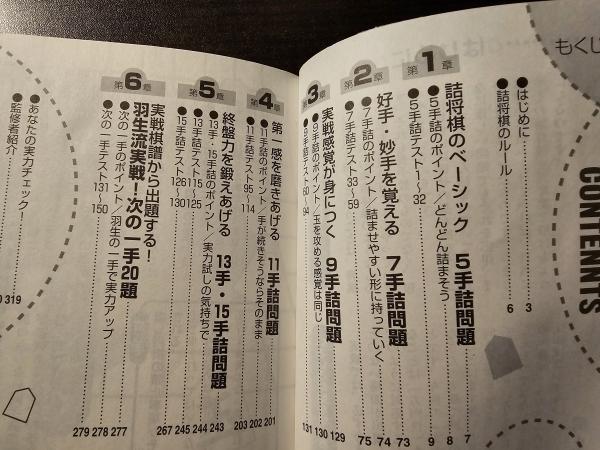 もくじ
CONTENNTS
●はじめに……3
詰将棋のルール……6
第1章
詰将棋のベーシック 5手詰問題……7
●5手詰のポイント／どんどん詰まそう……8
●5手詰テスト1〜32……9
第2章
好手・妙手を覚える 7手詰問題……73
●7手詰のポイント／詰ませやすい形に持っていく……74
●7手詰テスト33〜59……75
第3章
実戦感覚が身につく 9手詰問題……129
●9手詰のポイント／玉を攻める感覚は同じ……130
●9手詰テスト60〜94……131
第4章
第一感を磨きあげる 11手詰問題……201
●11手詰のポイント／手が続きそうならそのまま……202
●11手詰テスト95〜114……203
第5章
終盤力を鍛えあげる 13手・15手詰問題……243
●13手・15手詰のポイント／実力試しの気持ちで……244
●13手詰テスト115〜125……245
●15手詰テスト126〜130……267
第6章
実戦棋譜から出題する!
羽生流実戦!次の一手20題……277
●次の一手のポイント／羽生の一手で実力アップ……278
●次の一手テスト131〜150……279
●あなたの実力チェック!……319
●監修者紹介……